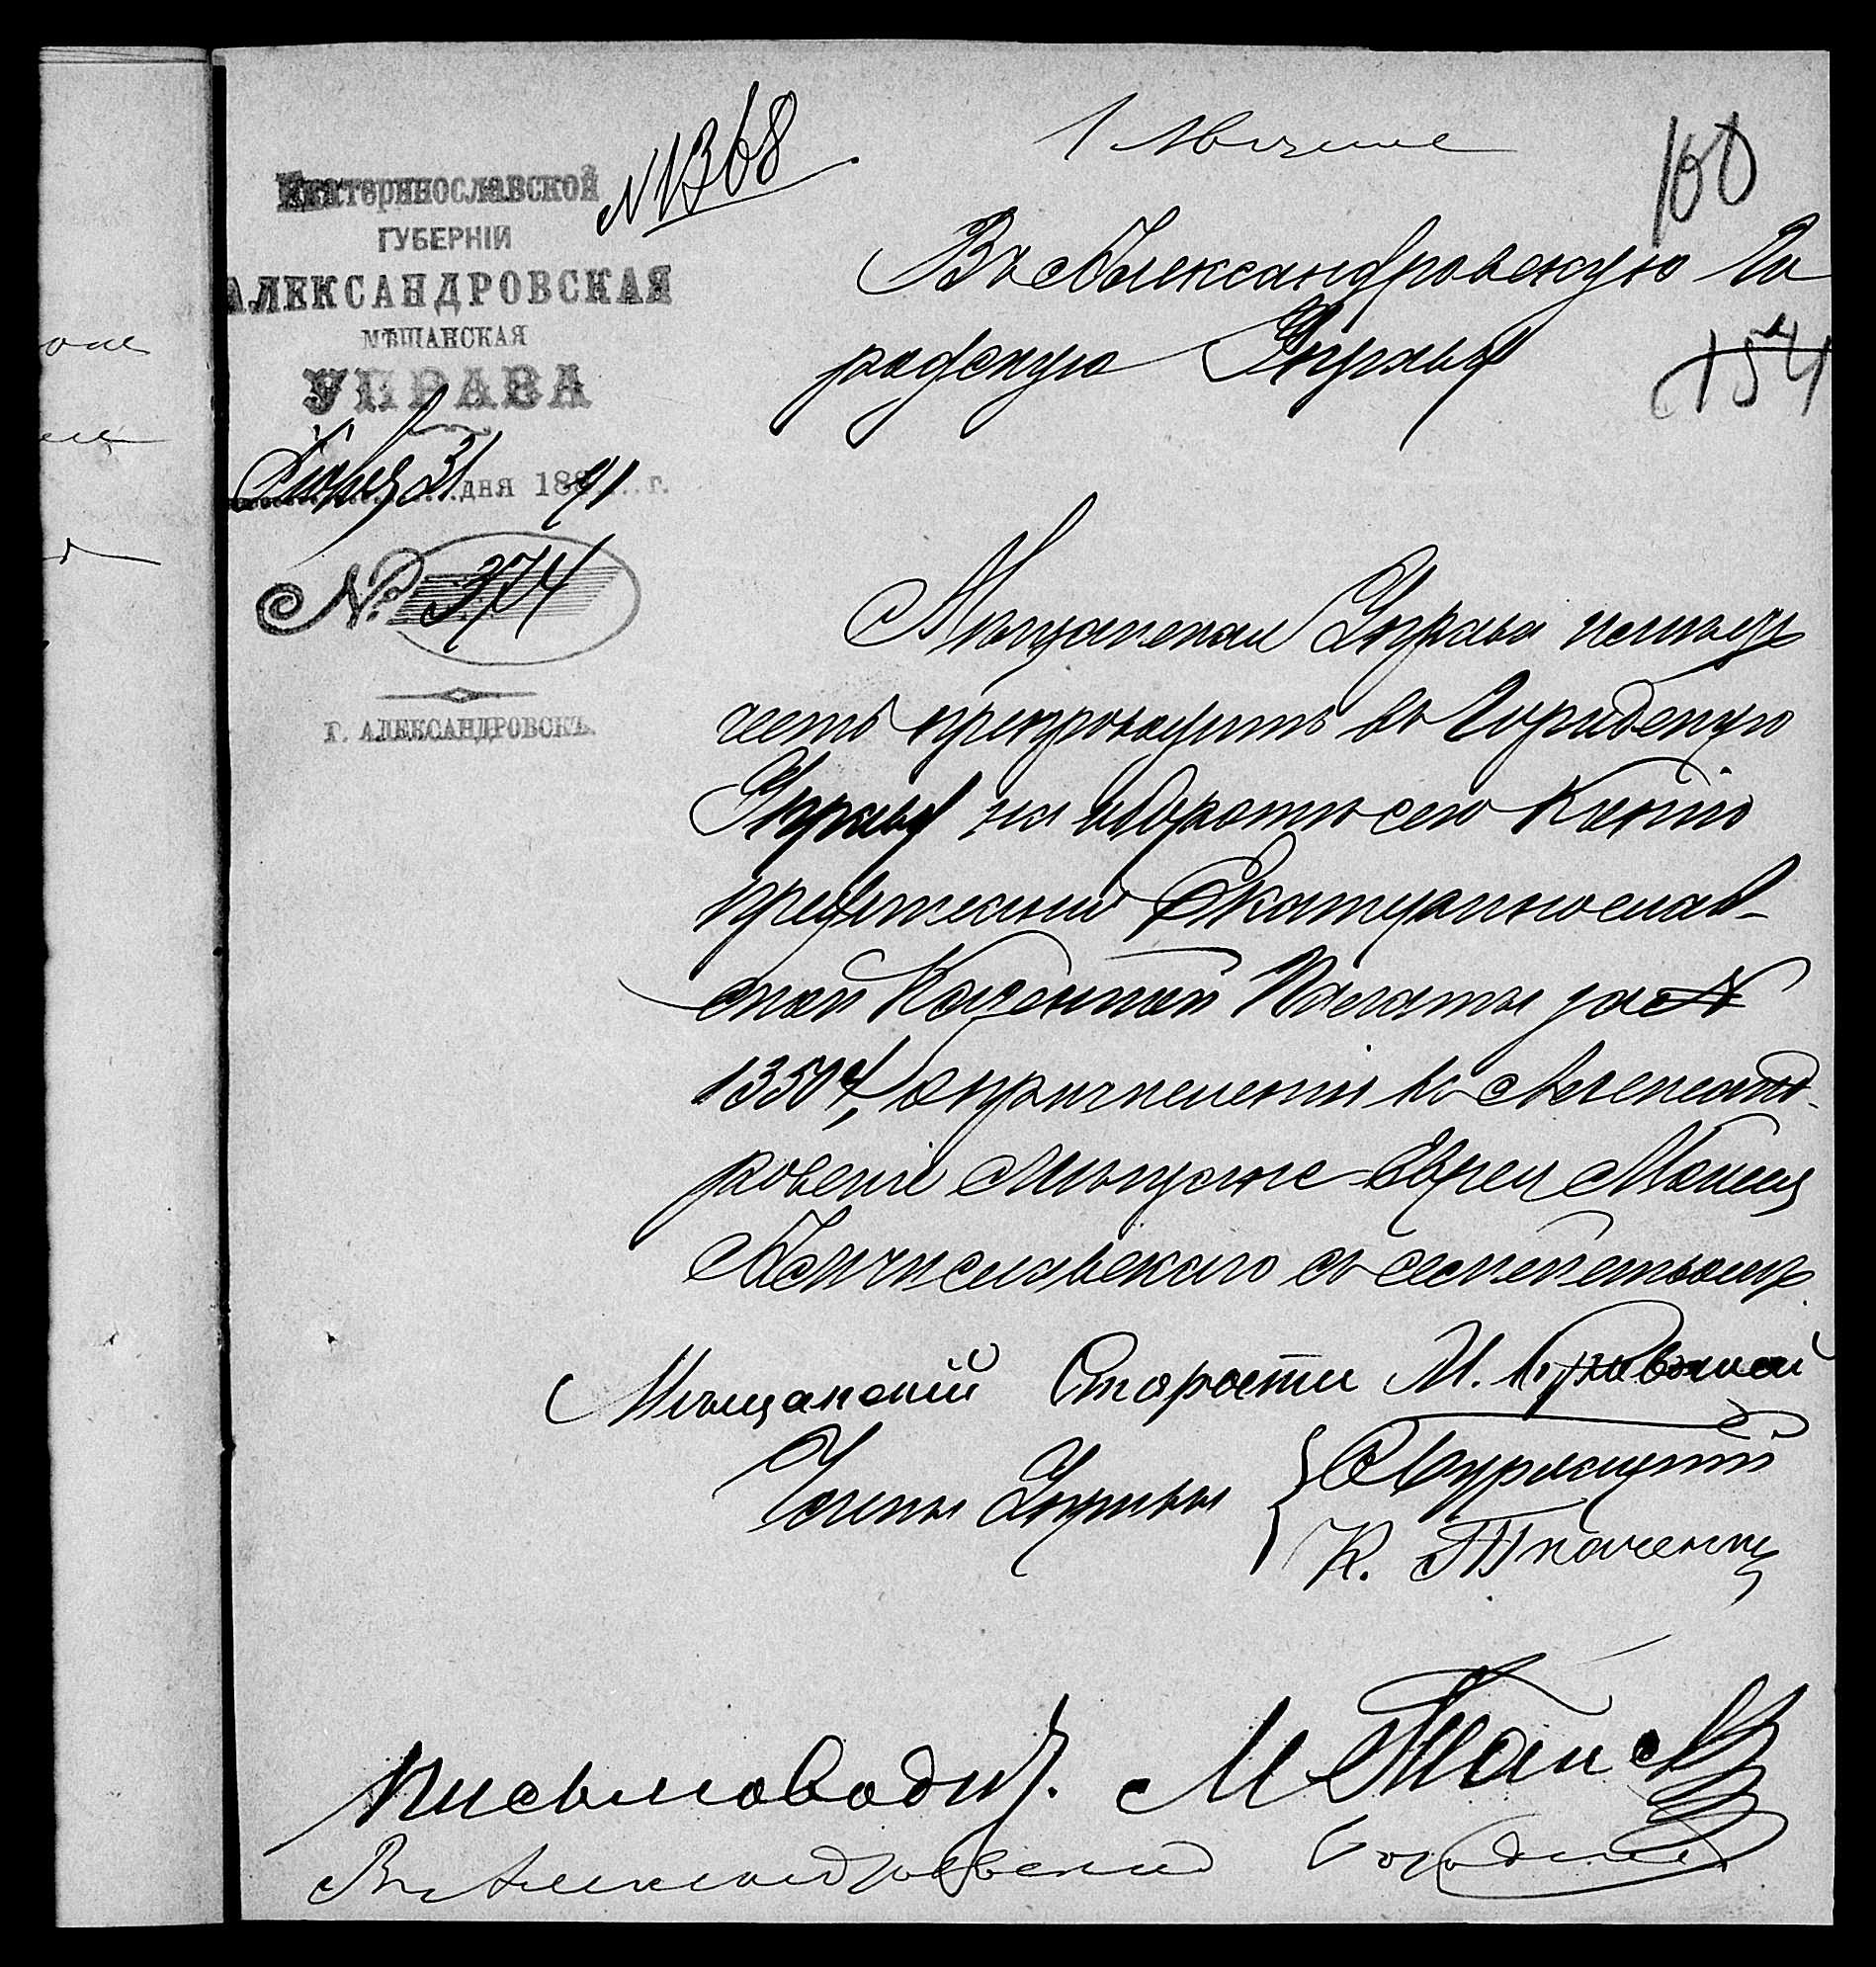 Екатеринославской
ГУБЕРНІИ
АЛЕКСАНДРОВСКАЯ
МѢЩАНСКАЯ
УПРАВА
31 дня 1891 г.
№ 374
Г. АЛЕКСАНДРОВСКЪ.
№ 1368
100
Въ Александровскую Го
родскую Управу
154
Мѣщанская Управа имѣетъ
честь препроводить въ Городскую
Управу на оборотѣ сего копію
предписанія Екатеринослав-
ской Казенной Палаты за №
13504, о причисленіи въ Александ-
ровскіе мѣщане еврея
съ семействомъ
Мѣщанскій Староста М.
Члены Управы
К. Ткаченко
Письмоводит.
Въ Александровскую Городскую